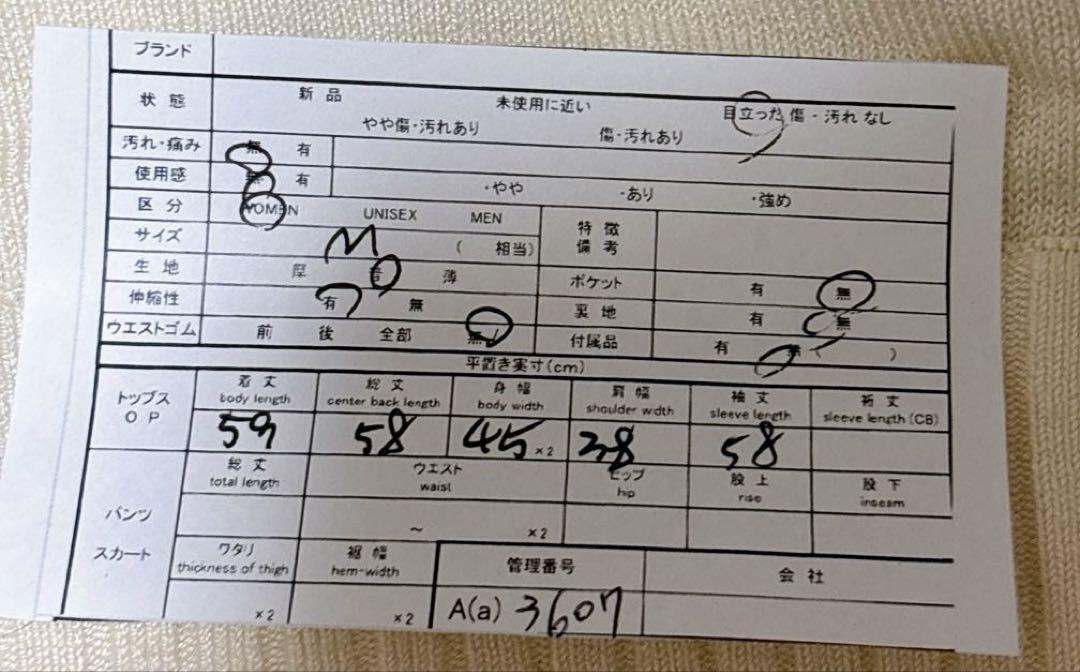 ブランド
状態 新品 未使用に近い 目立った傷・汚れなし
やや傷・汚れあり 傷・汚れあり
汚れ・痛み 無 有
使用感 無 有 ・やや ・あり ・強め
区分 WOMEN UNISEX MEN 特徴
サイズ M ( 相当) 備考
生地 厚 普 薄 ポケット 有 無
伸縮性 有 無 裏地 有 無
ウエストゴム 前 後 全部 無 付属品 有 無 ( )
平置き実寸(cm)
トップス 着丈 総丈 身幅 肩幅 袖丈 裄丈
OP body length center back length body width shoulder wdth sleeve length sleeve length (CB)
59 58 45 ×2 38 58
総丈 ウエスト ヒップ 股上 股下
total length waist hip rise inseam
パンツ ～ ×2
スカート ワタリ 裾幅 管理番号 会社
thickness of thigh hem-width
×2 ×2 A(a) 3607